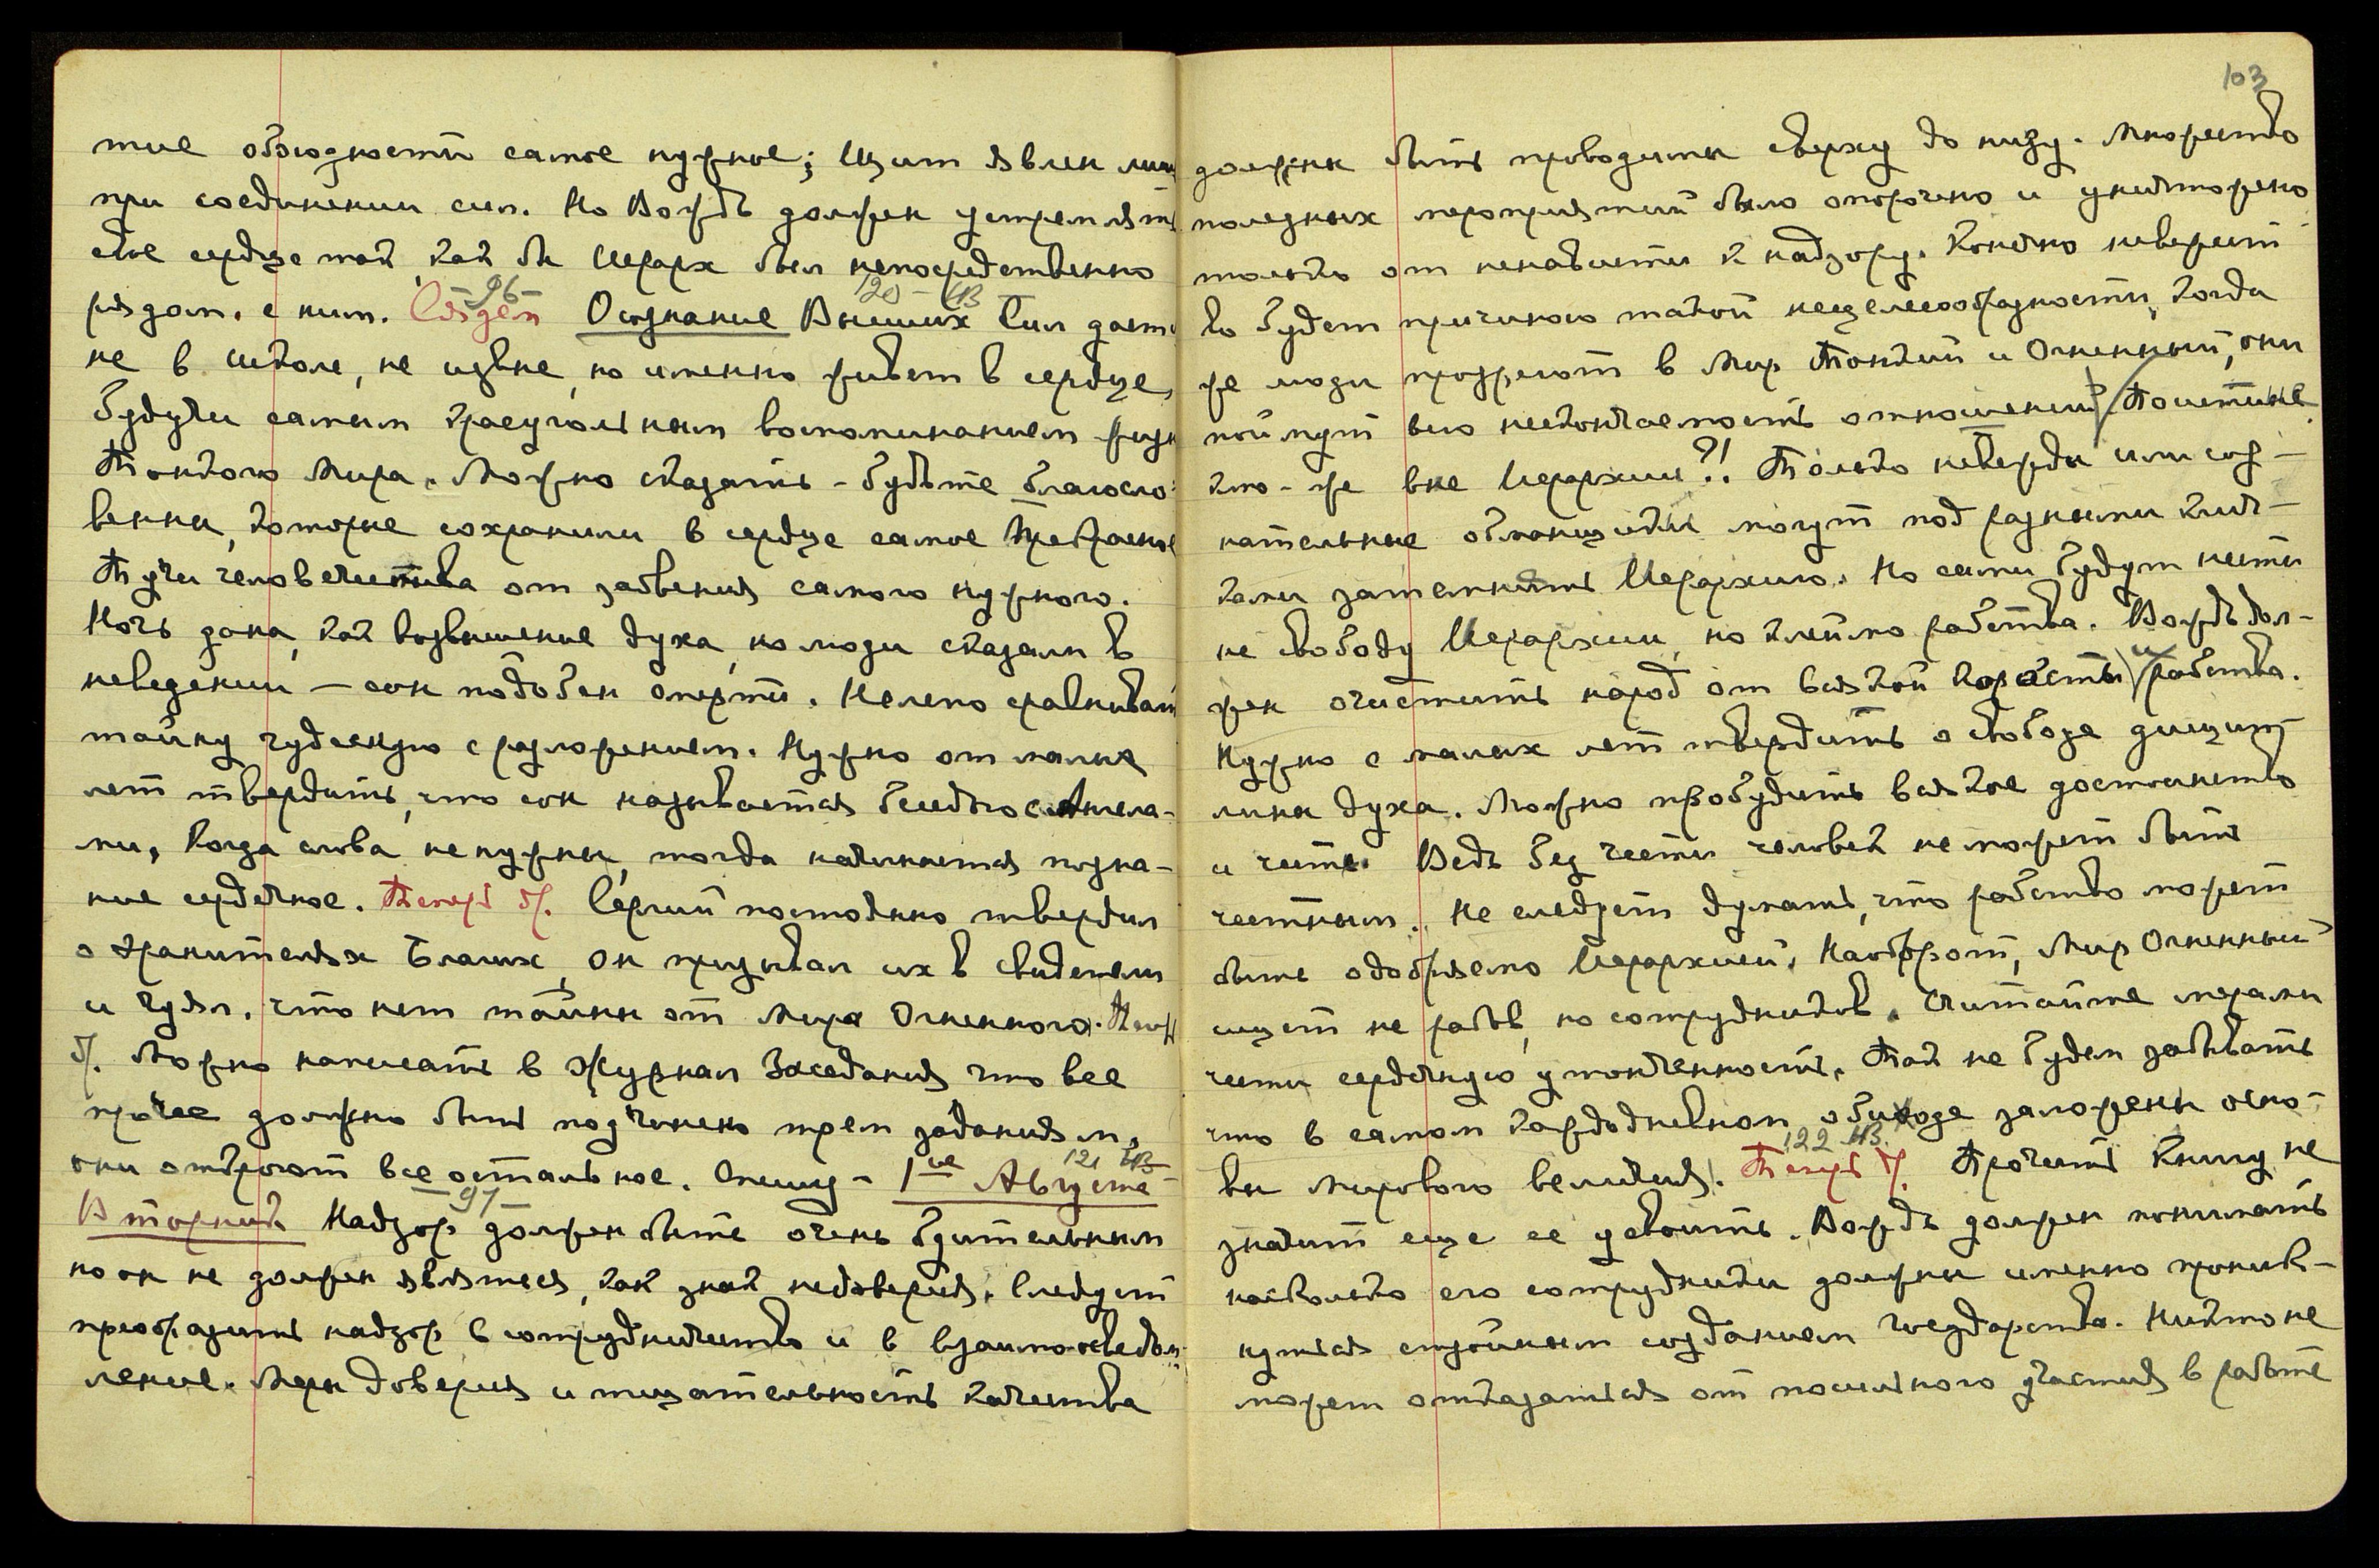 тие обоюдности самое нужное; Щит явлен лишь
при соединении сил. Но Вождь должен устремлять
свое сердце так, как бы Иерарх был непосредственно
рядом с ним. Сядем -96- 120 - НВ Осознание Высших Сил дается
не в школе, не извне, но именно живет в сердце,
будучи самым краеугольным воспоминанием жизни
Тонкого Мира. Можно сказать - будьте благосло-
венны, которые сохранили в сердце самое Прекрасное
Пути человечества от забвения самого нужного.
Ночь дана, как возвышение духа, но люди сказали в
неведении — сон подобен смерти. Нелепо сравнивать
тайну чудесную с разложением. Нужно от малых
лет твердить, что сон называется беседою с Ангела-
ми, когда слова не нужны, тогда начинается позна-
ние сердечное. Теперь др. Сергий постоянно твердил
о хранителях Благих, Он призывал их в свидетели
и чуял, что нет тайны от Мира Огненного. Теперь
др. Можно написать в Журнал Заседания что все
прочее должно быть подчинено трем заданиям,
они откроют все остальное. Спешу - 1ое Августа 121 НВ
Вторник -97- Надзор должен быть очень бдительным
но он не должен являться, как знак недоверия. Следует
преобразить надзор в сотрудничество и в взаимоосведом-
ление. Меры доверия и тщательность качества
103
должны быть проводимы сверху до низу. Множество
полезных мероприятий было опорочено и уничтожено
только от ненависти к надзору. Конечно невежест-
во будет причиною такой нецелесообразности, когда
же люди прозреют в Мир Тонкий и Огненный, они
поймут всю нескончаемость отношений. Поистине,
кто-же вне Иерархии?! Только невежды или соз-
нательные обманщики могут под разными клич-
ками затемнять Иерархию. Но сами будут нести
не свободу Иерархии, но клеймо рабства. Вождь дол-
жен очистить народ от всякой корысти и рабства.
Нужно с малых лет твердить о свободе дисцип-
лины духа. Можно пробудить всякое достоинство
и честь. Ведь без чести человек не может быть
честным. Не следует думать, что рабство может
быть одобряемо Иерархией. Наоборот, Мир Огненный
ищет не рабов, но сотрудников. Считайте мерами
чести сердечную утонченность. Так не будем забывать
что в самом каждодневном обиходе заложены осно-
вы мирового величия. Теперь др. 122 НВ. Прочесть книгу не
значит еще ее усвоить. Вождь должен понимать
насколько его сотрудники должны именно проник-
нуться стройным созданием государства. Никто не
может отказаться от посильного участия в работе